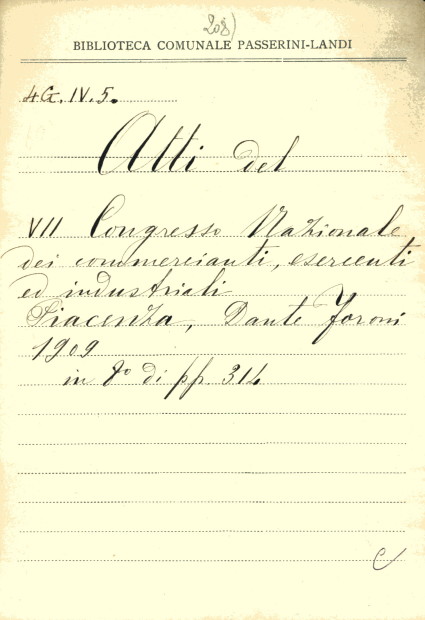 208)
BIBLIOTECA COMUNALE PASSERINI-LANDI
4G. IV. 5.
Atti del
VII Congresso Nazionale
dei commercianti, esercenti
ed industriali
Piacenza, Dante Foroni
1909
in 8º di pp. 314
C